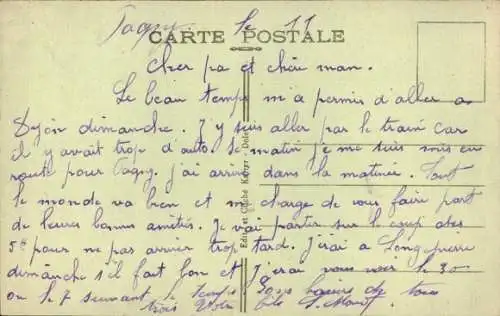 Tagny le 11
CARTE POSTALE
Cher pa et chère man.
Le beau temps m'a permis d'aller a
Dijon dimanche. J'y suis aller par le train car
il y avait trop d'auto. Le matin je me suis mis en
route pour Tagny. j'ai arrivé dans la matinée. Tout
le monde va bien et me charge de vous faire part
de leurs bonnes amitiés. Je vai partir sur le coup des
5h pour ne pas arriver trop tard. J'irai a Longepierre
dimanche s'il fait bon et j'irai vous voir le 30
ou le 7 suivant le temps. Bons baisers de tous
trois Votre fils
Edit. et Cliché Karrer - Dole